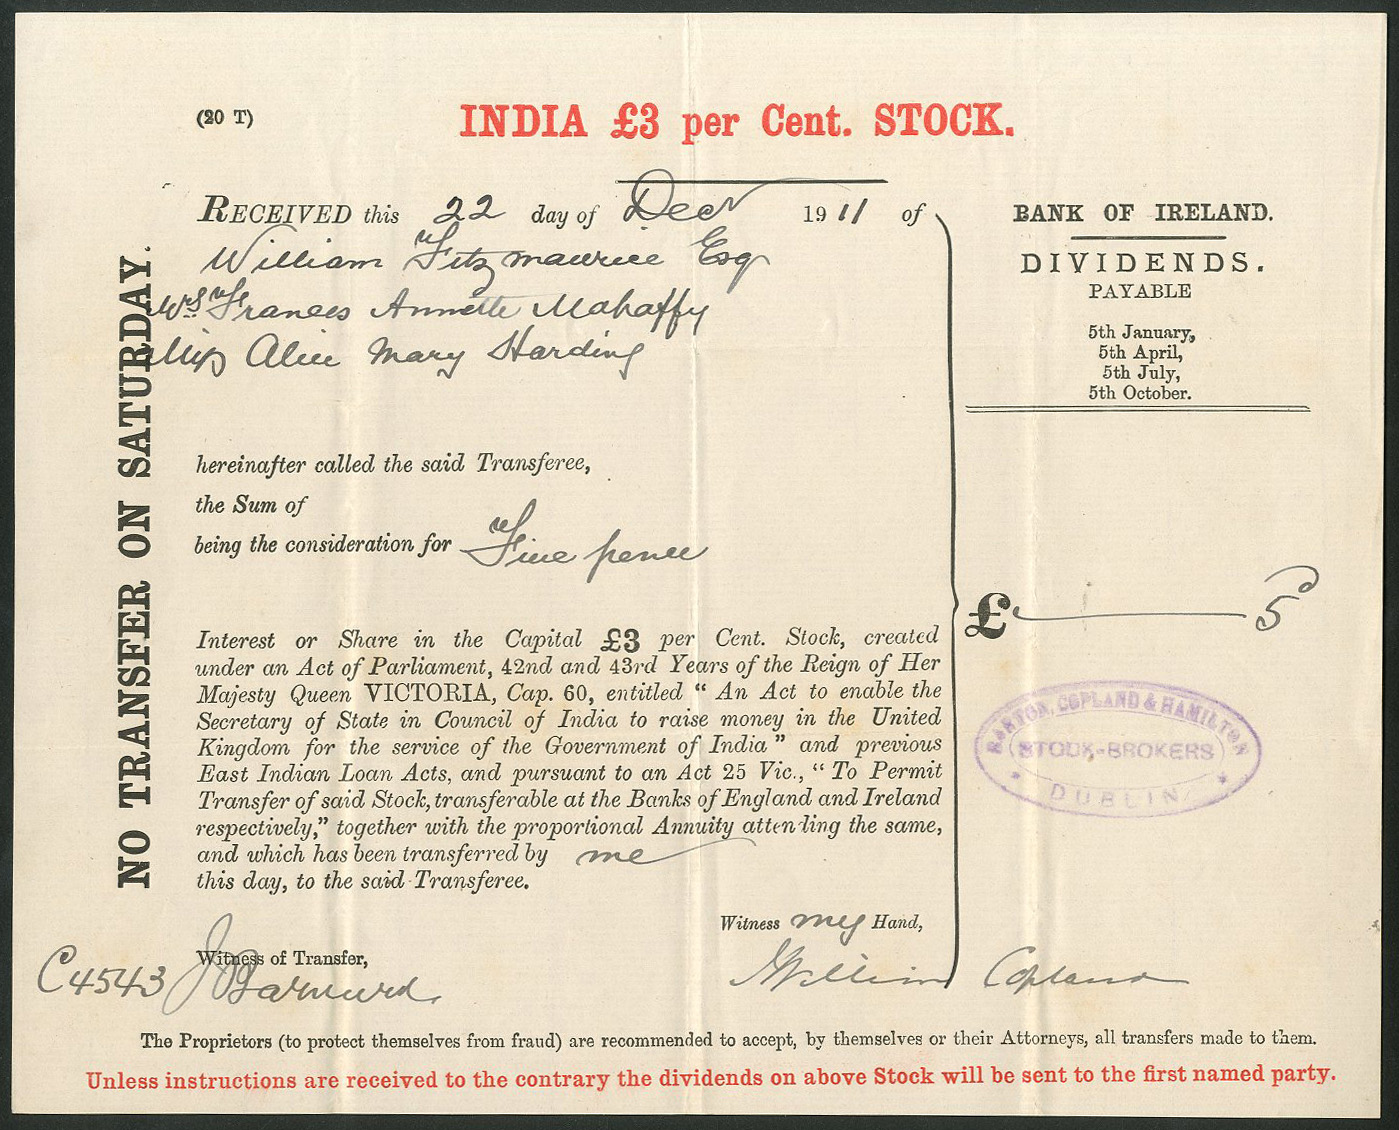 (20 T)
INDIA £3 per Cent. STOCK.
RECEIVED this 22 day of Decr 1911 of
William Fitzmaurice Esq
Mrs Frances Annette Mahaffy
Miss Alice Mary Harding
hereinafter called the said Transferee,
the Sum of
being the consideration for Five pence
Interest or Share in the Capital £3 per Cent. Stock, created
under an Act of Parliament, 42nd and 43rd Years of the Reign of Her
Majesty Queen VICTORIA, Cap. 60, entitled “ An Act to enable the
Secretary of State in Council of India to raise money in the United
Kingdom for the service of the Government of India ” and previous
East Indian Loan Acts, and pursuant to an Act 25 Vic., “ To Permit
Transfer of said Stock, transferable at the Banks of England and Ireland
respectively,” together with the proportional Annuity attending the same,
and which has been transferred by me
this day, to the said Transferee.
Witness my Hand,
Witness of Transfer,
C4543 J Barnard
William Copland
NO TRANSFER ON SATURDAY.
BANK OF IRELAND.
DIVIDENDS.
PAYABLE
5th January,
5th April,
5th July,
5th October.
£ 5d
BARTON, COPLAND & HAMILTON
STOCK-BROKERS
DUBLIN
The Proprietors (to protect themselves from fraud) are recommended to accept, by themselves or their Attorneys, all transfers made to them.
Unless instructions are received to the contrary the dividends on above Stock will be sent to the first named party.